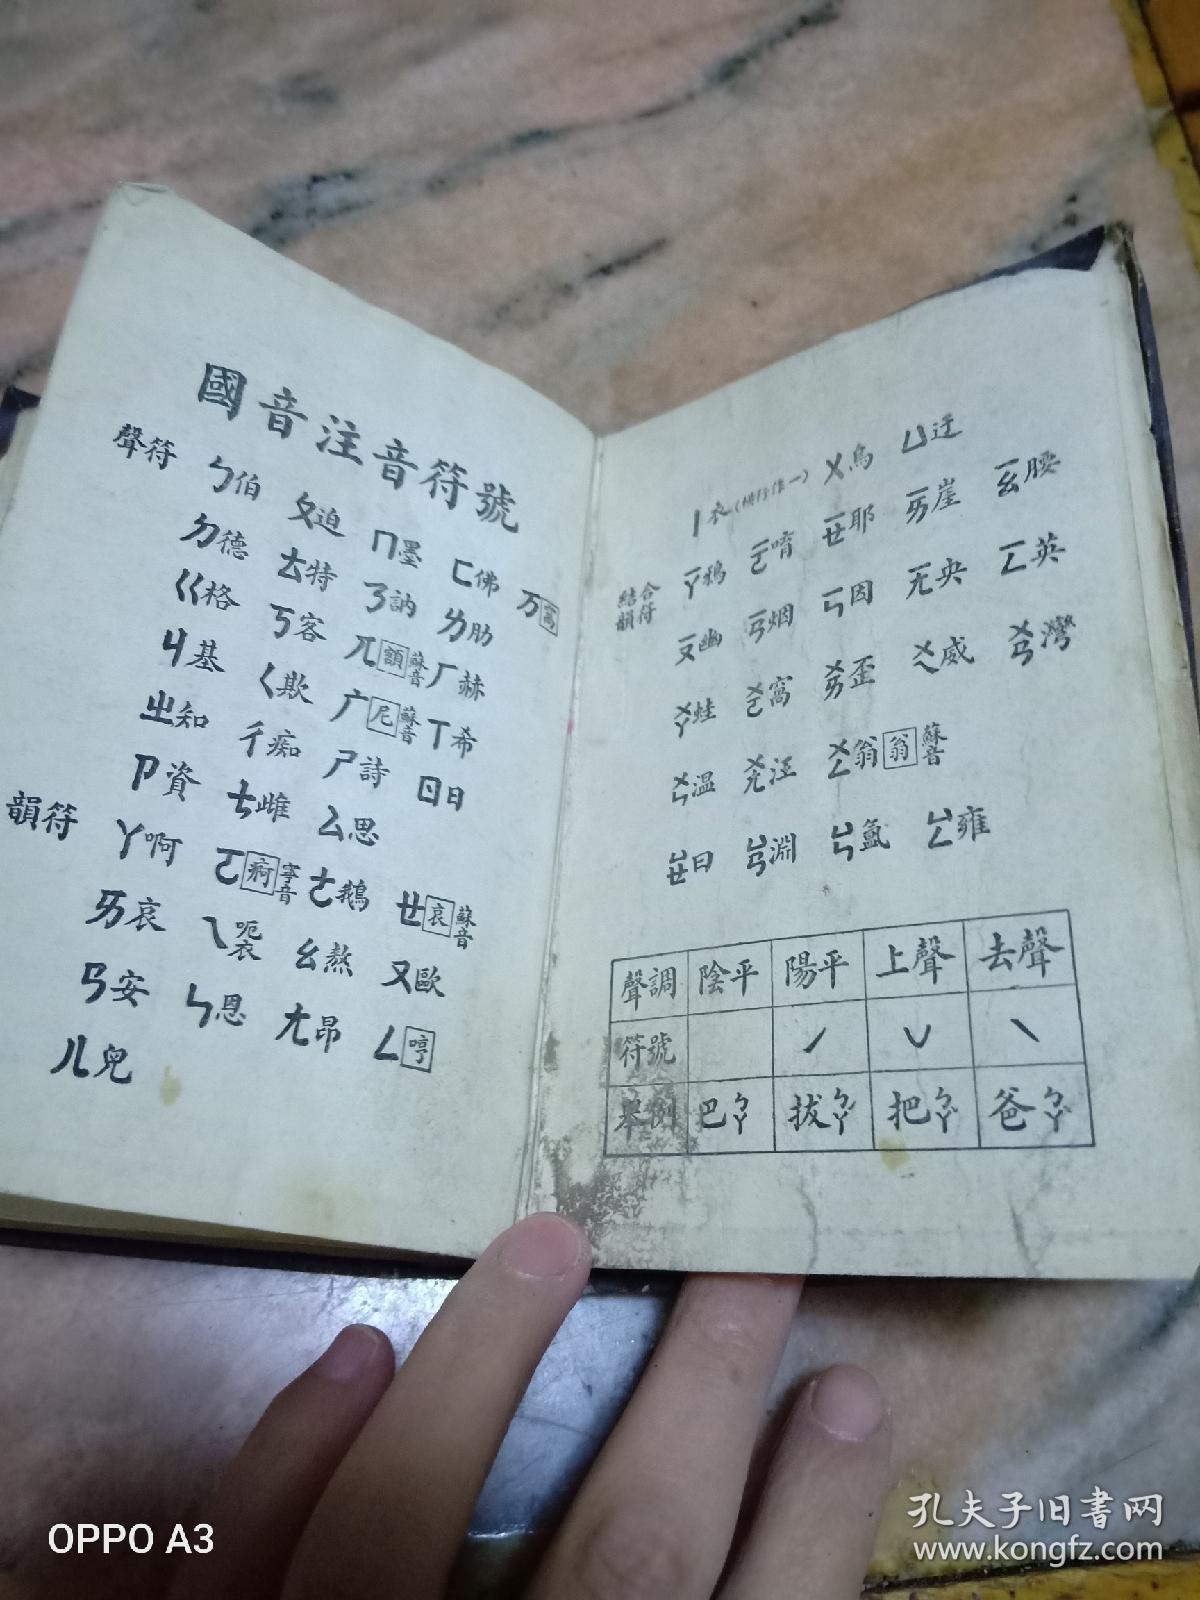 國音注音符號
聲符
ㄅ伯 ㄆ迫 ㄇ墨 ㄈ佛 万窩
ㄉ德 ㄊ特 ㄋ訥 ㄌ肋
ㄍ格 ㄎ客 兀額蘇音 ㄏ赫
ㄐ基 ㄑ欺 广尼蘇音 ㄒ希
ㄓ知 ㄔ痴 ㄕ詩 ㄖ日
ㄗ資 ㄘ雌 ㄙ思
韻符
ㄚ啊 ㄛ痾寧音 ㄜ鵝 ㄝ哀蘇音
ㄞ哀 ㄟ呃衣 ㄠ熬 ㄡ歐
ㄢ安 ㄣ恩 ㄤ昂 ㄥ哼
ㄦ兒
丨衣(橫行作一) ㄨ烏 ㄩ迂
結合韻符
ㄧㄚ鴉 ㄧㄛ唷 ㄧㄝ耶 ㄧㄞ崖 ㄧㄠ腰
ㄧㄡ幽 ㄧㄢ烟 ㄧㄣ因 ㄧㄤ央 ㄧㄥ英
ㄨㄚ蛙 ㄨㄛ窩 ㄨㄞ歪 ㄨㄟ威 ㄨㄢ灣
ㄨㄣ溫 ㄨㄤ汪 ㄨㄥ翁翁蘇音
ㄩㄝ曰 ㄩㄢ淵 ㄩㄣ氳 ㄩㄥ雍
聲調 陰平 陽平 上聲 去聲
符號 ˊ ˇ ˋ
舉例 巴ㄅㄚ 拔ㄅㄚ 把ㄅㄚ 爸ㄅㄚ
OPPO A3
孔夫子旧書网
www.kongfz.com